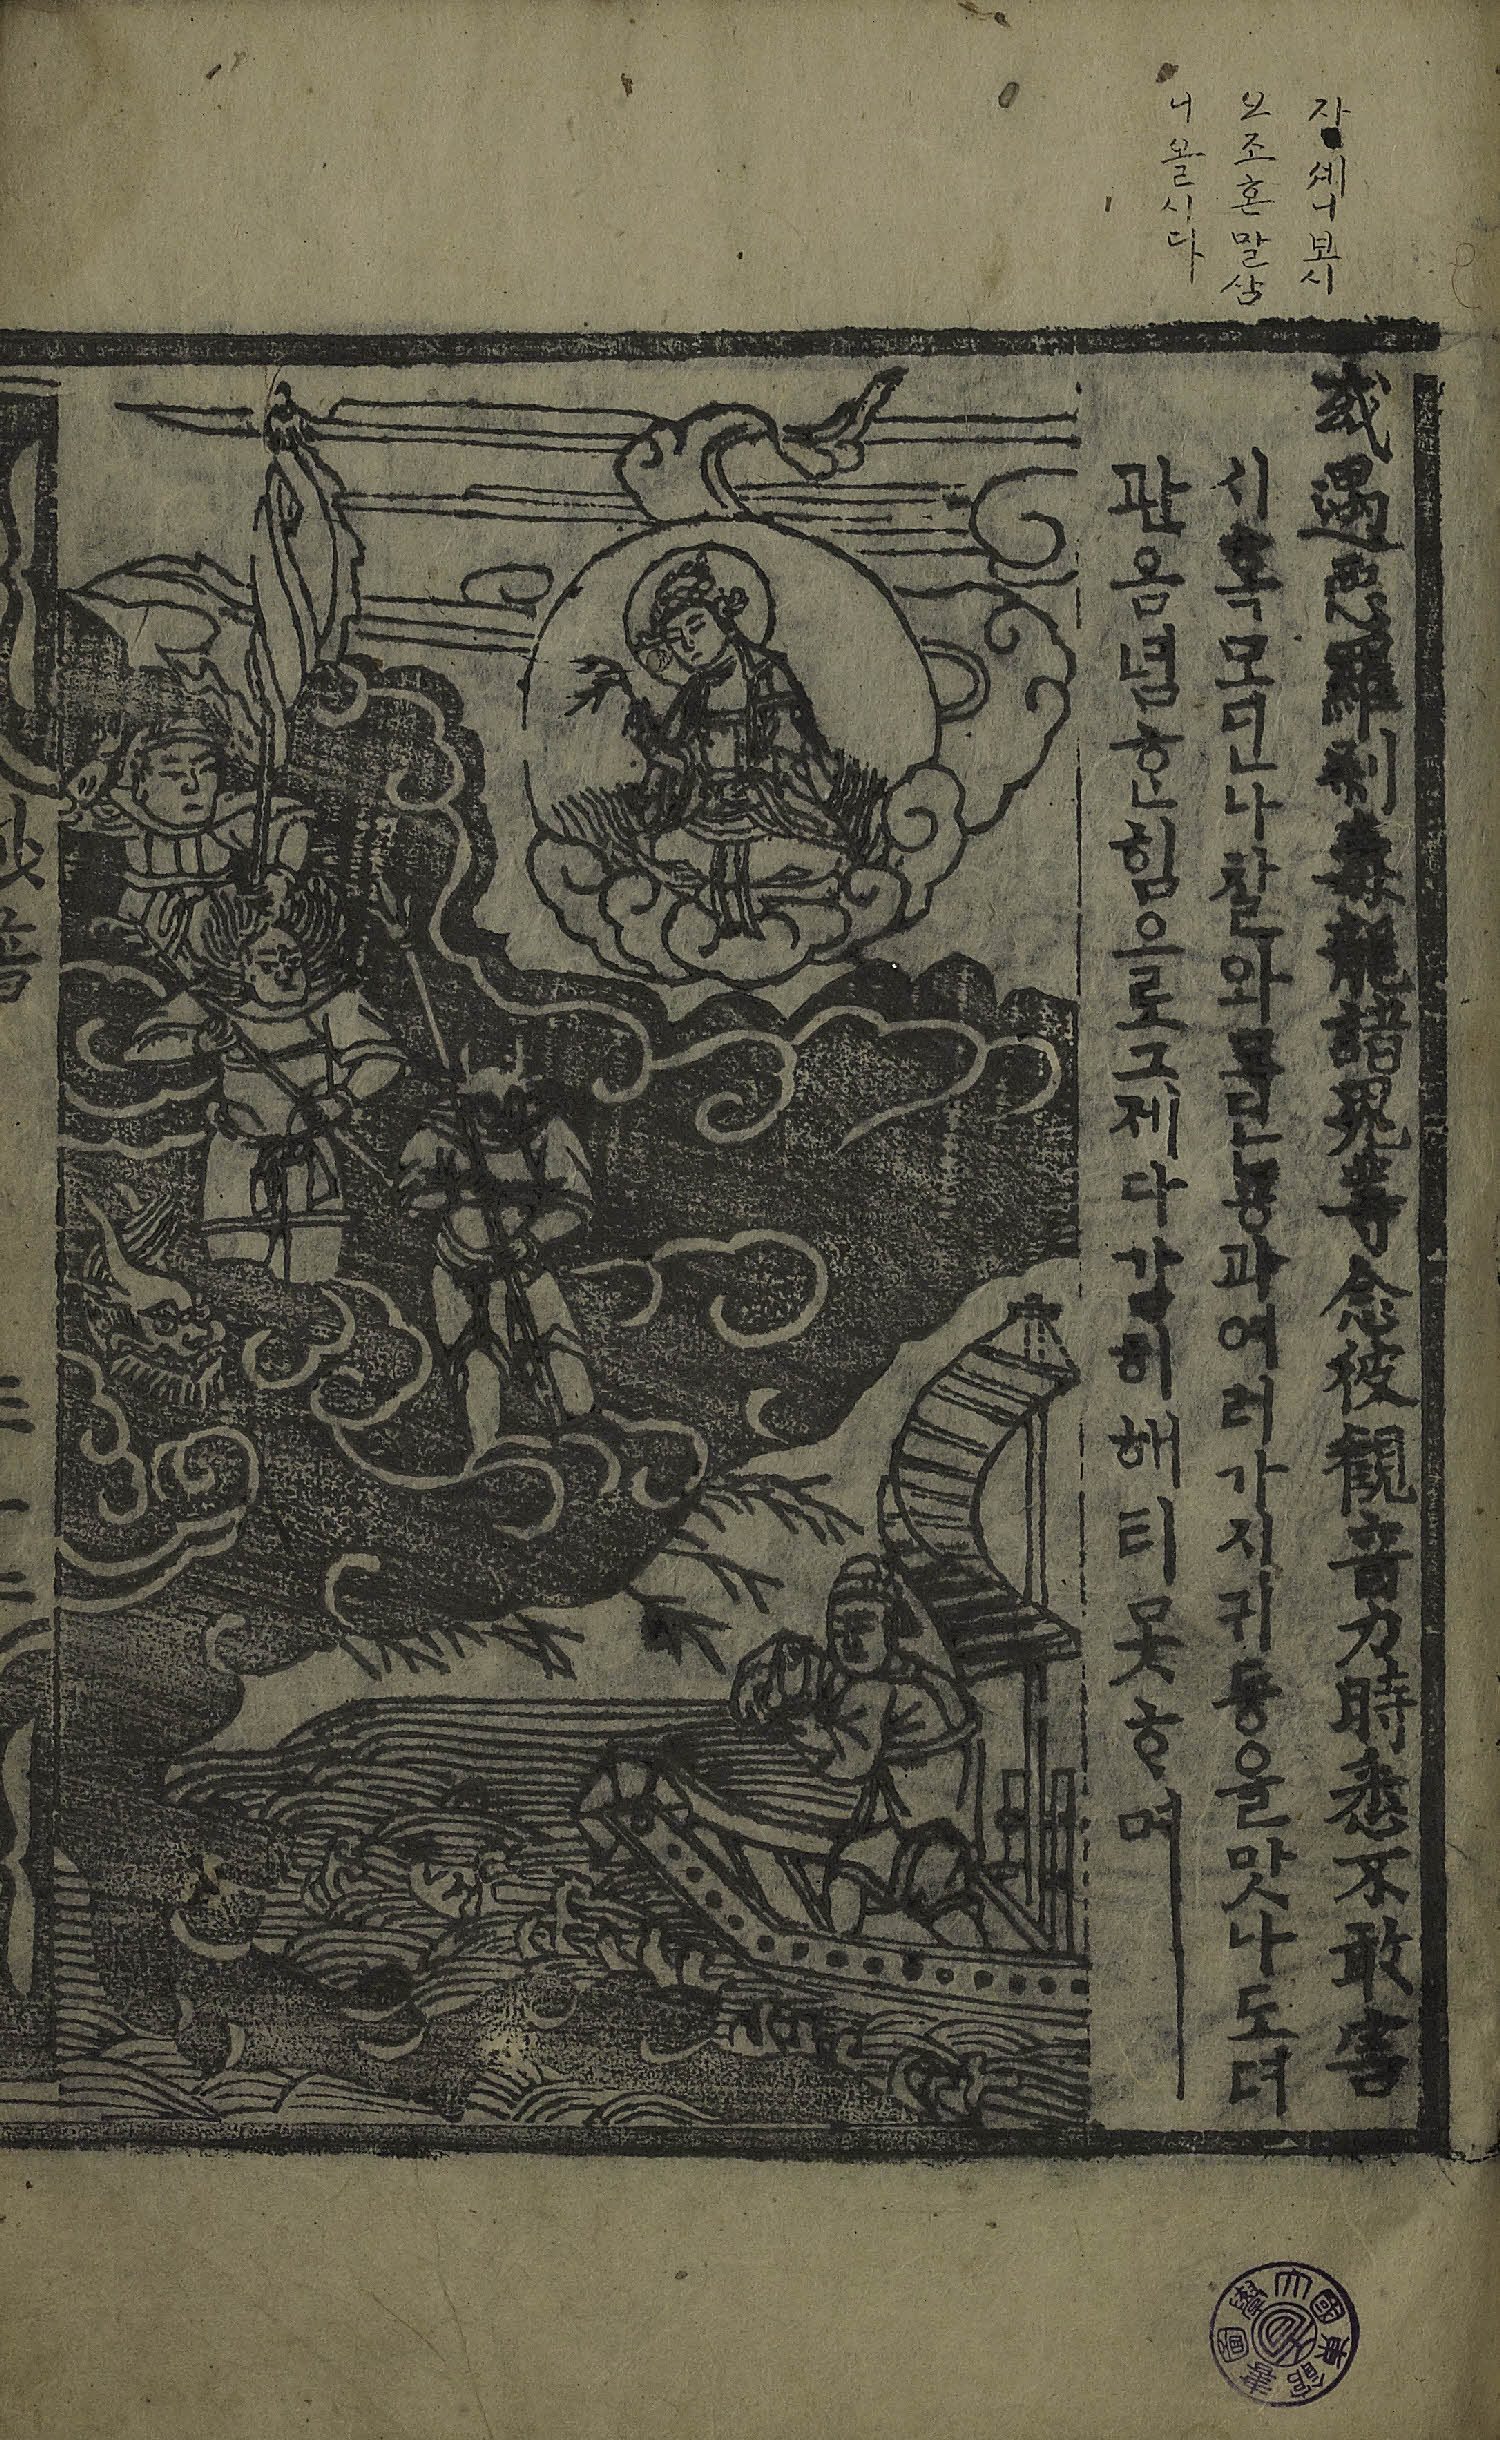 자셰니보시
보조흔말삼
니올시다
或遇惡羅刹毒龍諸鬼等念彼觀音力時悉不敢害
시혹모딘나찰와모딘룡과여러가지귀등을맛나도뎌
관음념ᄒᆞᆫ힘으로그제다감히해티못ᄒᆞ며